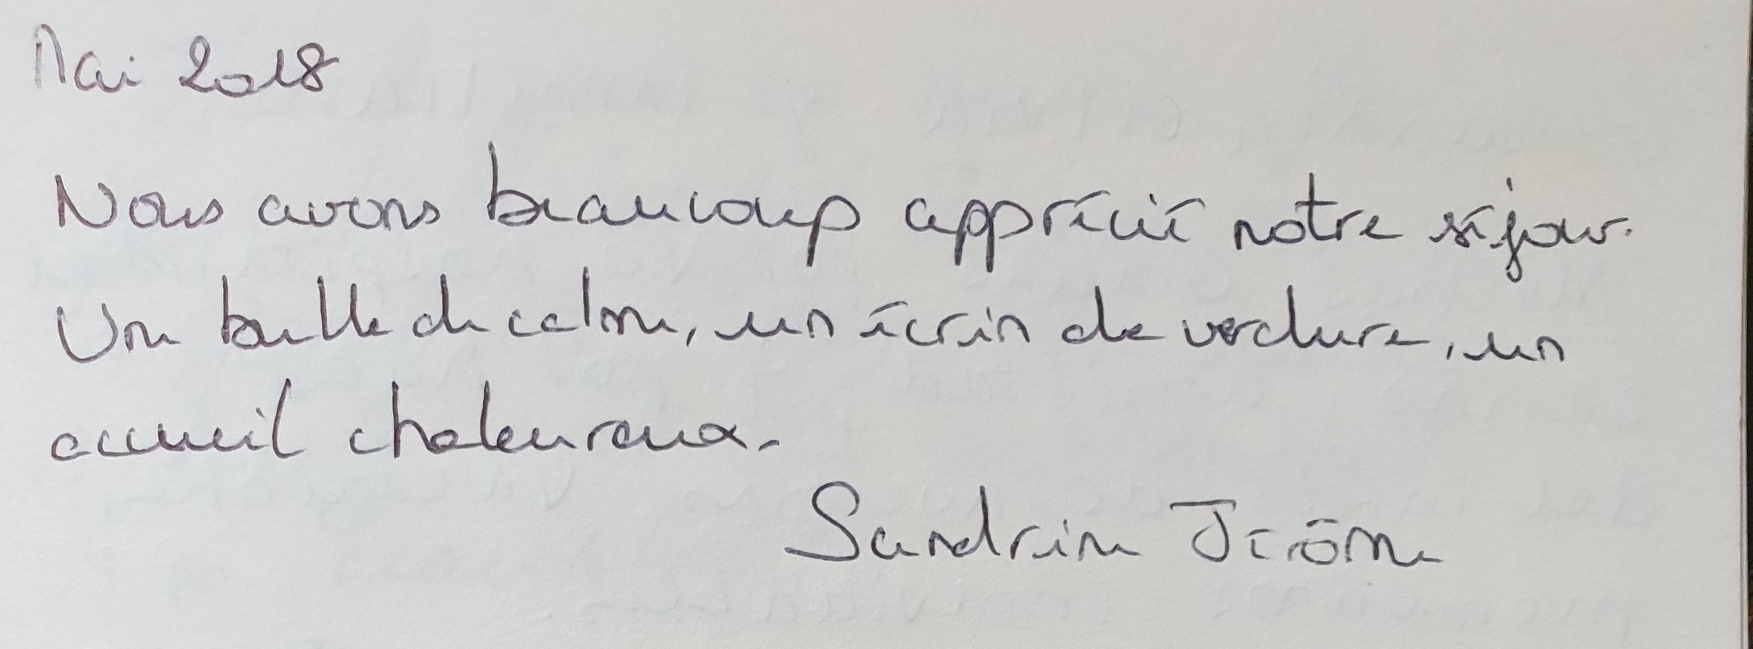 Mai 2018
Nous avons beaucoup apprécié notre séjour.
Une bulle de calme, un écrin de verdure, un
accueil chaleureux.
Sandrine Jérôme